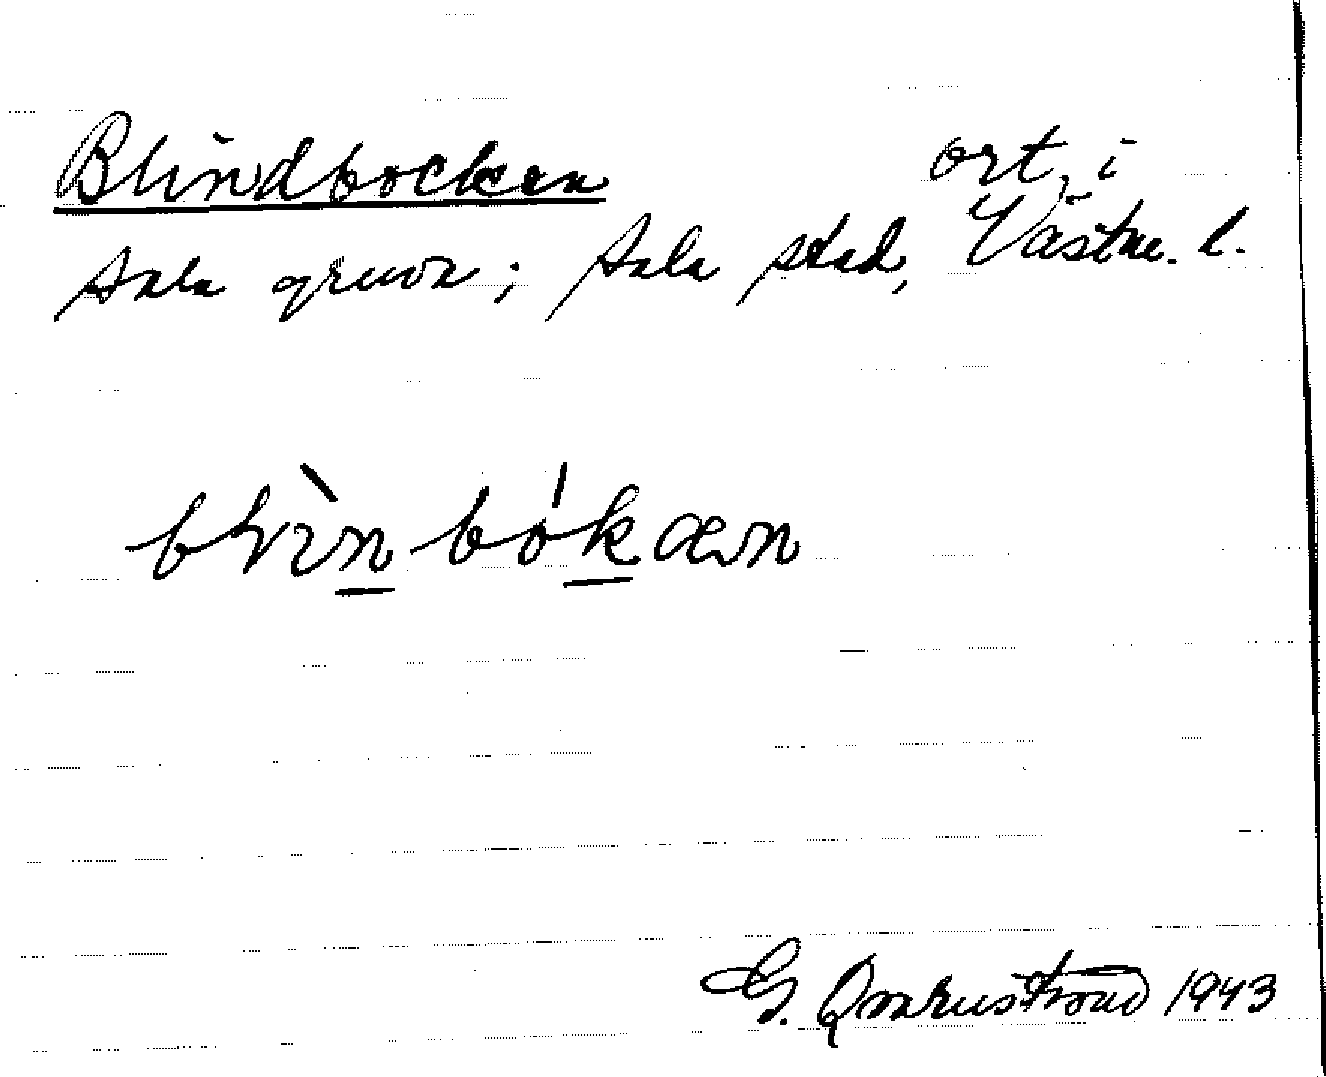 Blindbocken ort, i
Sala gruva; Sala stad, Västm. l.
blìn bókæn
G. Qvarnström 1943